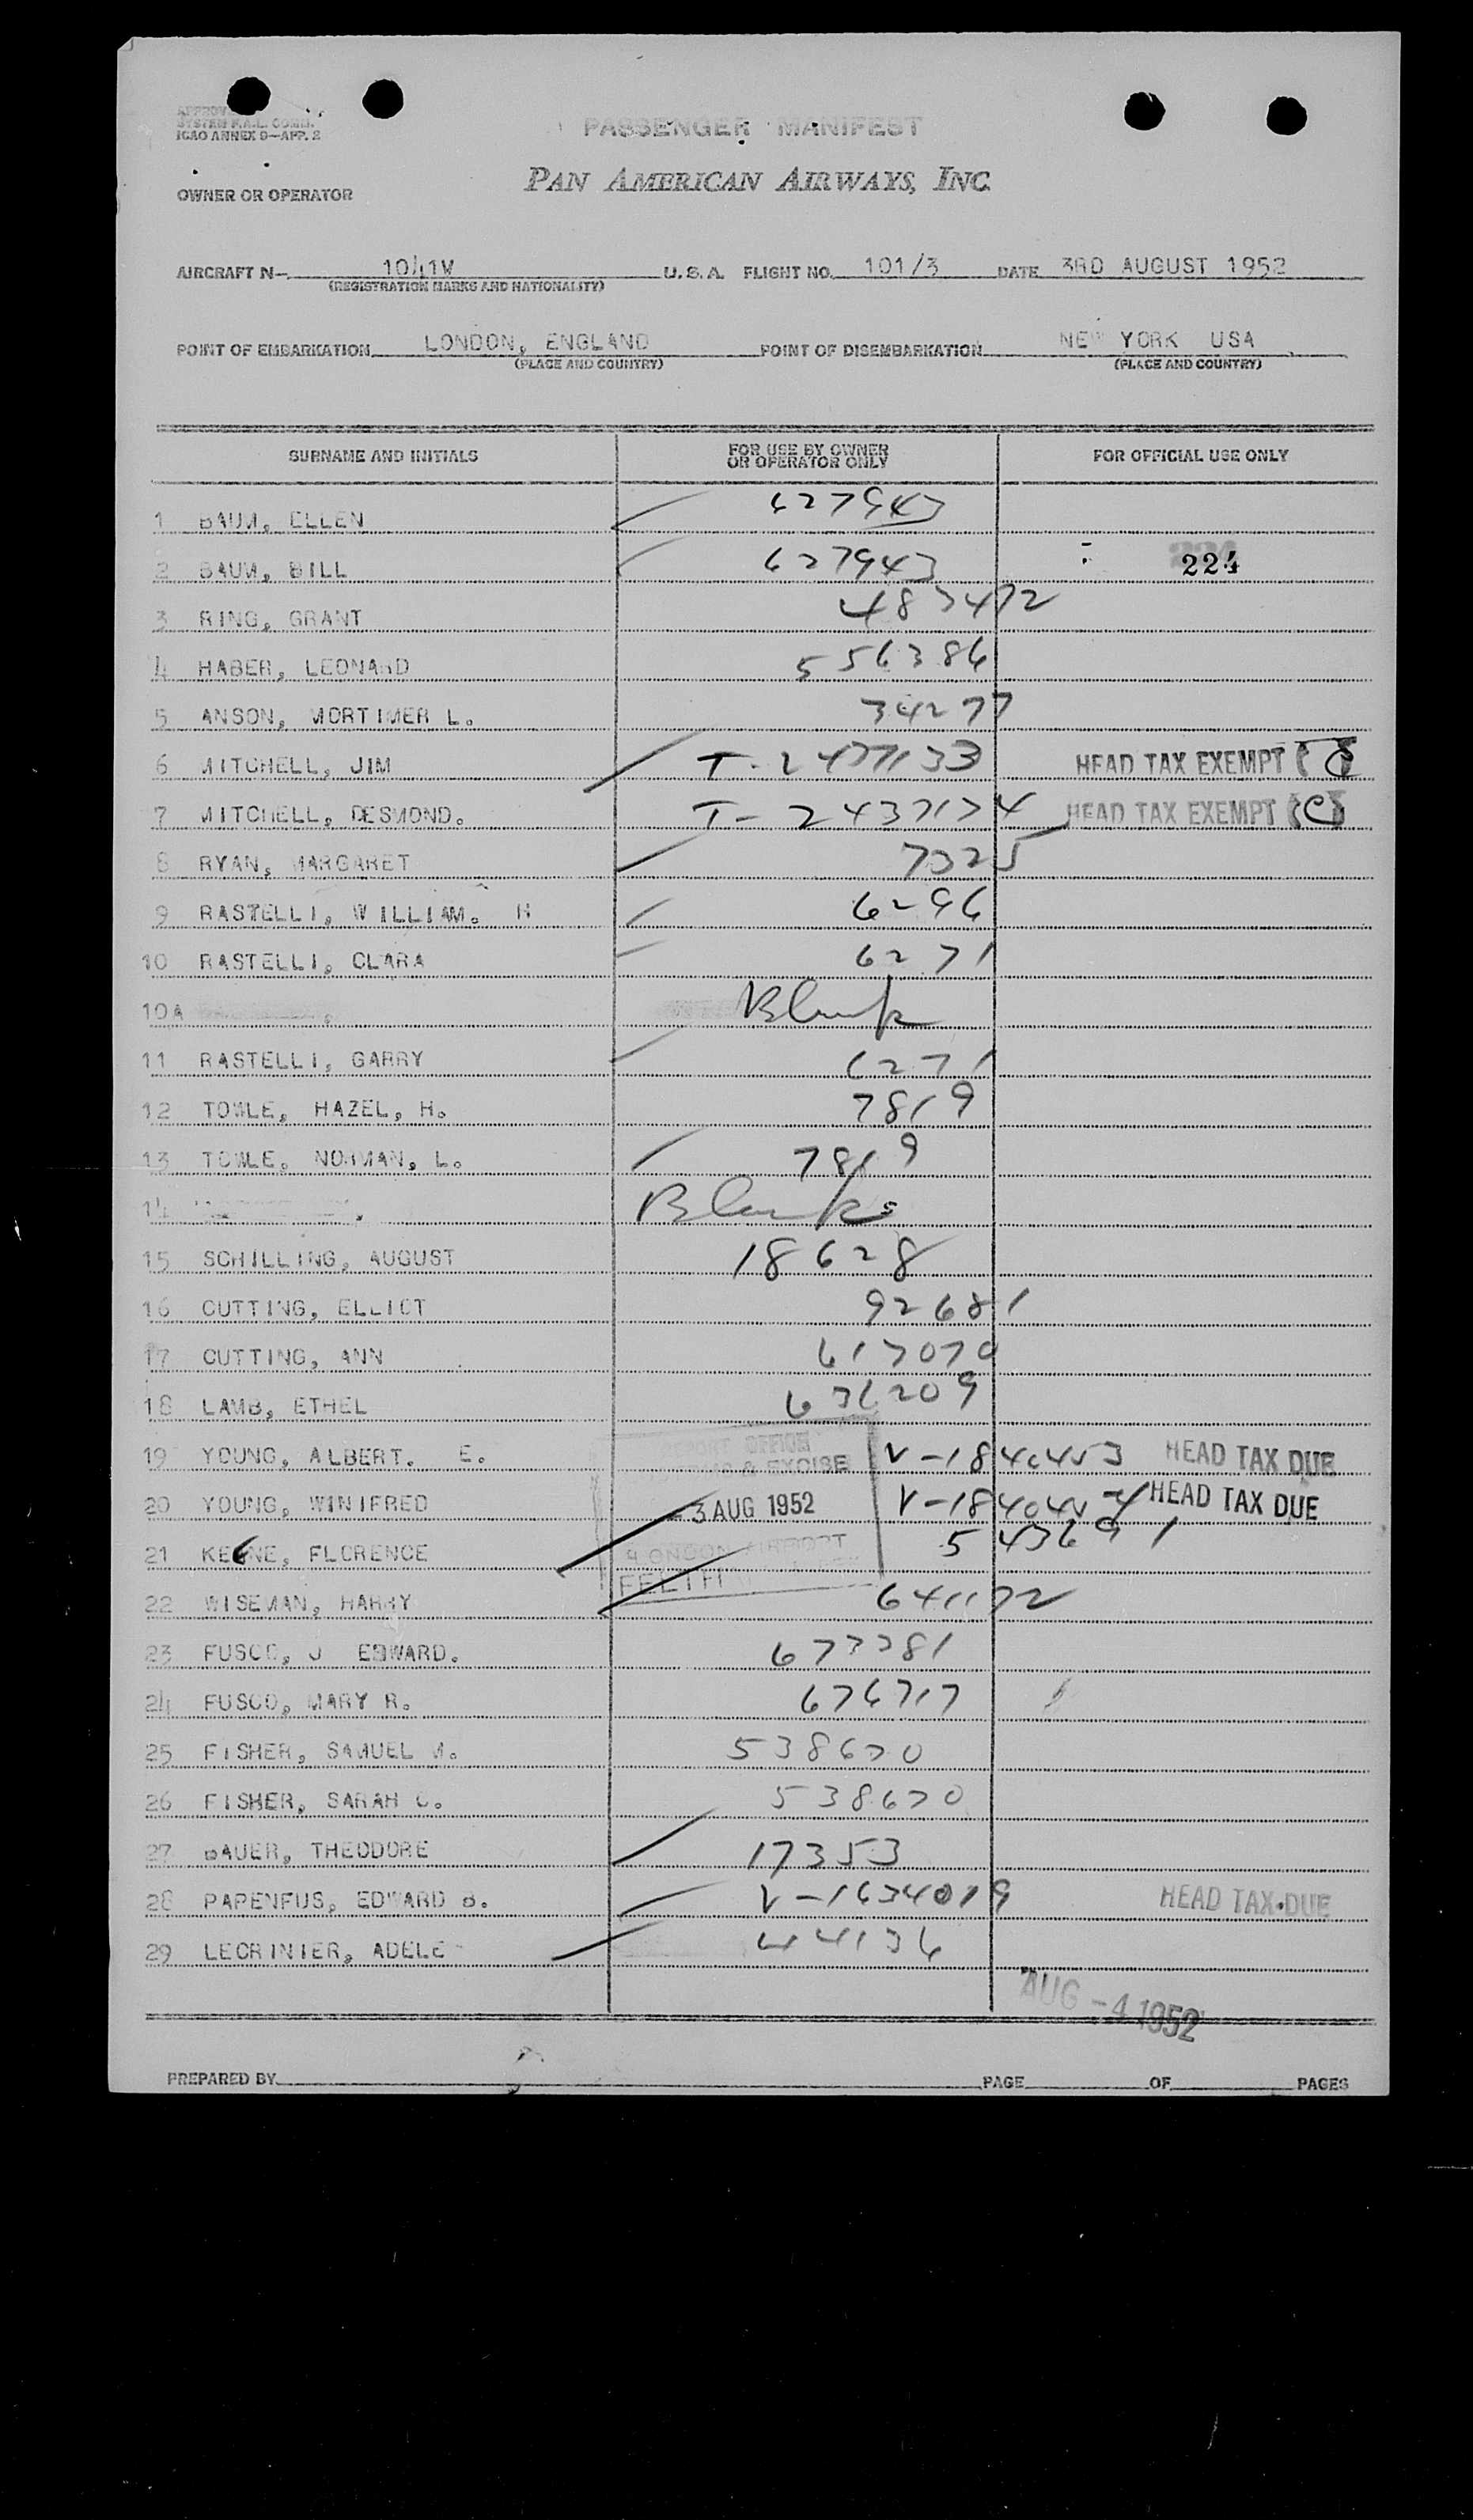 APPROV
SYSTEM F.A.L. COMM.
ICAO ANNEX 9—APP. 2
PASSENGER MANIFEST
OWNER OR OPERATOR PAN AMERICAN AIRWAYS, INC.
AIRCRAFT N— 1041V U.S.A. FLIGHT NO. 101/3 DATE 3RD AUGUST 1952
(REGISTRATION MARKS AND NATIONALITY)
POINT OF EMBARKATION LONDON, ENGLAND POINT OF DISEMBARKATION NEW YORK USA
(PLACE AND COUNTRY) (PLACE AND COUNTRY)
SURNAME AND INITIALS FOR USE BY OWNER OR OPERATOR ONLY FOR OFFICIAL USE ONLY
1 BAUM, ELLEN 627943
2 BAUM, BILL 627943 224
3 RING, GRANT 483472
4 HABER, LEONARD 556386
5 ANSON, MORTIMER L. 34277
6 MITCHELL, JIM HEAD TAX EXEMPT
7 MITCHELL, DESMOND. HEAD TAX EXEMPT
8 RYAN, MARGARET 7325
9 RASTELLI, WILLIAM. H 6296
10 RASTELLI, CLARA 6271
10A Blank
11 RASTELLI, GARRY 6271
12 TOWLE, HAZEL, H. 7819
13 TOWLE, NORMAN, L. 7819
14 Blank
15 SCHILLING, AUGUST 18628
16 CUTTING, ELLIOT 92681
17 CUTTING, ANN 617070
18 LAMB, ETHEL 636209
19 YOUNG, ALBERT. E. V-1840453 HEAD TAX DUE
20 YOUNG, WINIFRED HEAD TAX DUE
REPORT OFFICE
CUSTOMS & EXCISE
- 3 AUG 1952
LONDON AIRPORT
21 KEENE, FLORENCE 543691
22 WISEMAN, HARRY 641172
23 FUSCO, J EDWARD. 673381
24 FUSCO, MARY R. 676717
25 FISHER, SAMUEL M. 538670
26 FISHER, SARAH C. 538670
27 BAUER, THEODORE 17353
28 PAPENFUS, EDWARD B. V-1634019 HEAD TAX DUE
29 LECRINIER, ADELE 44136
AUG -4 1952
PREPARED BY PAGE OF PAGES